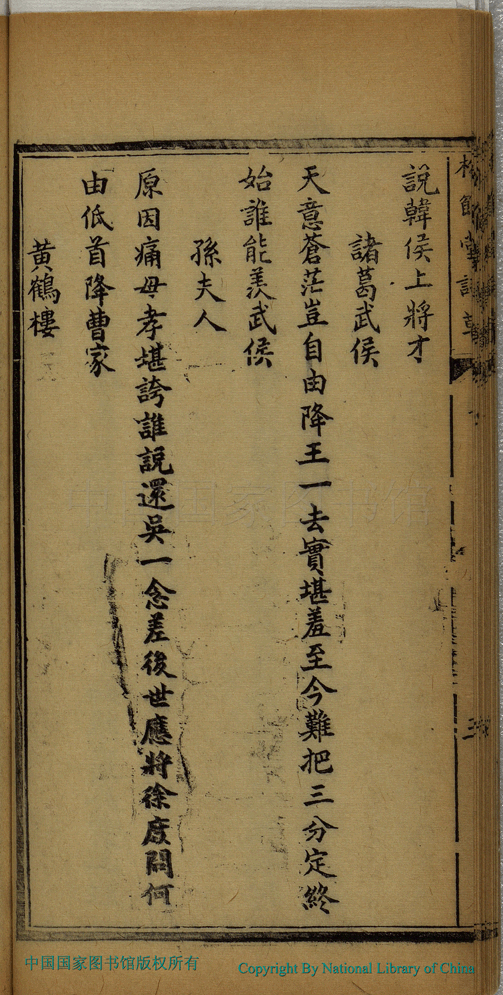 說韓侯上將才
諸葛武侯
天意蒼茫豈自由降王一去實堪羞至今難把三分定終
始誰能羨武侯
孫夫人
原因痛母孝堪誇誰說還吳一念差後世應將徐庶問何
由低首降曹家
黃鶴樓
三
中国国家图书馆版权所有
Copyright By National Library of China